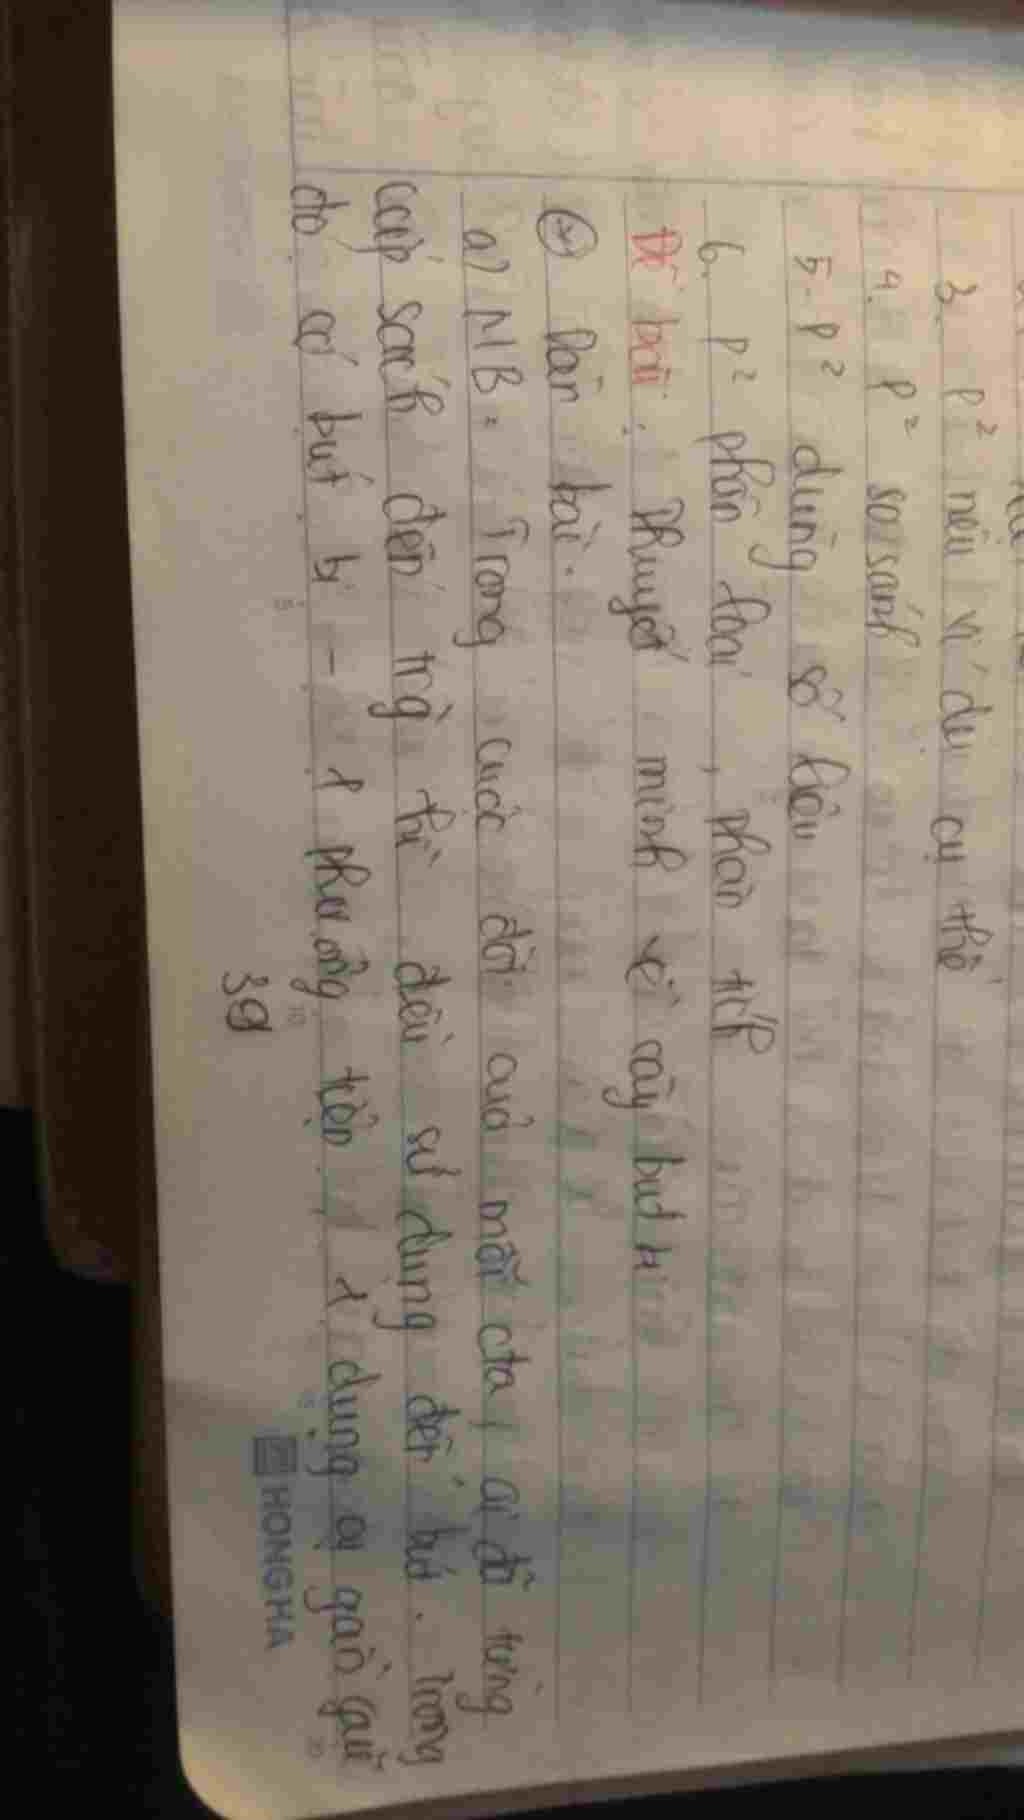 3. P² nêu ví dụ cụ thể
4. P² so sánh
5. P² dùng số liệu
6. P² phân loại, phân tích
Đề bài: Thuyết minh về cây bút bi
(*) Dàn bài.
a) MB: Trong cuộc đời của mỗi cta, ai đã từng
cắp sách đến trg thì đều sử dụng đến bút. Trong
đó có bút bi - 1 phương tiện, 1 dụng cụ gần gũi
39
HONGHA